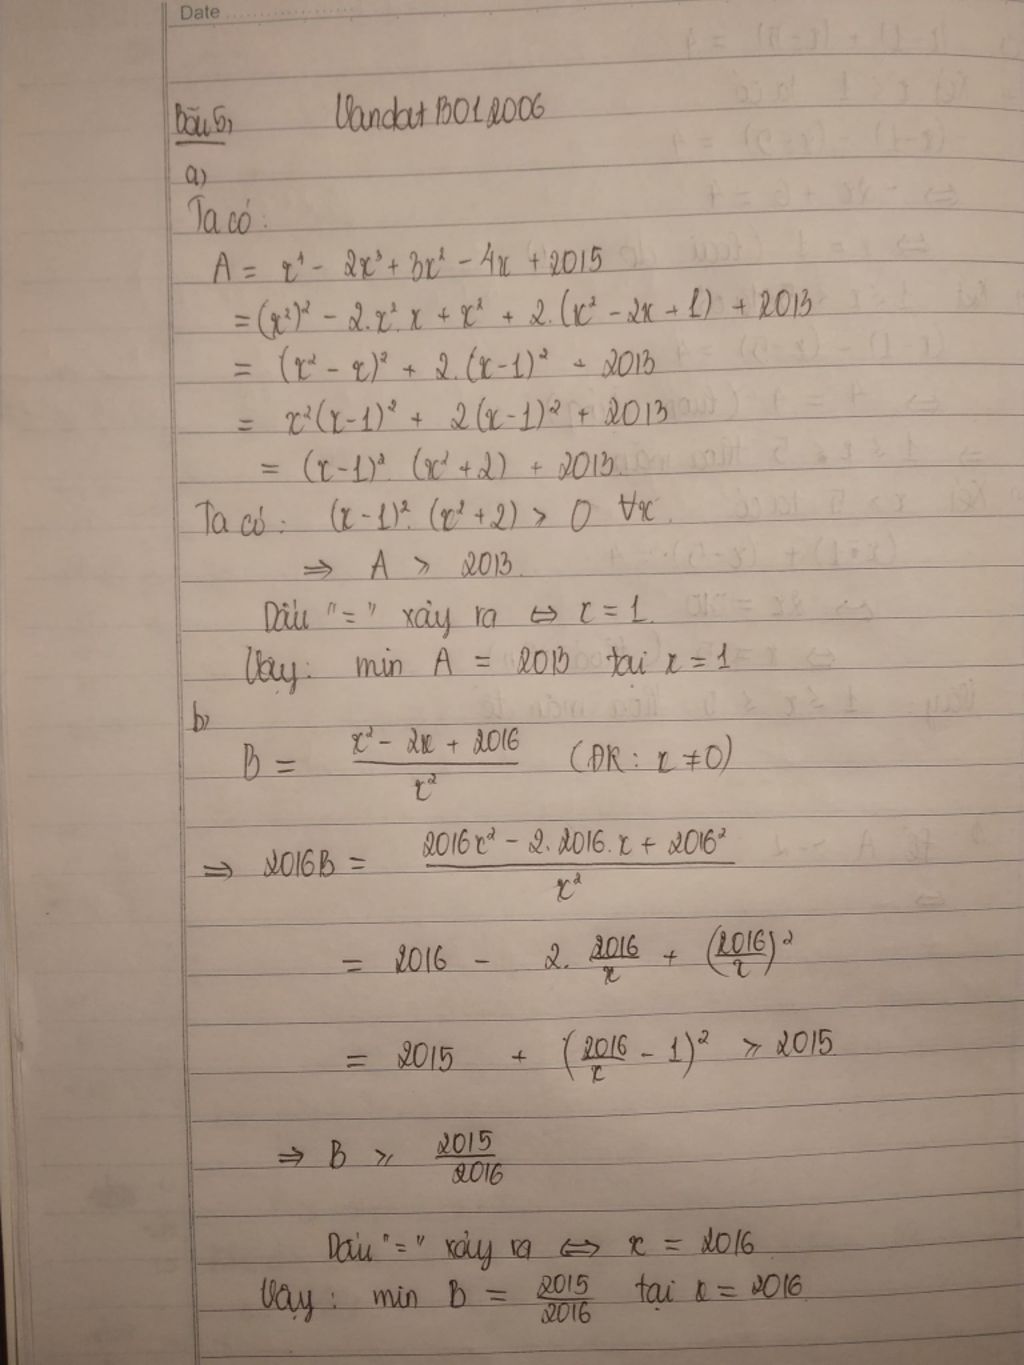 Date
Bài 5, Vandat B012006
a)
Ta có:
A = x⁴ - 2x³ + 3x² - 4x + 2015
= (x²)² - 2.x².x + x² + 2.(x² - 2x + 1) + 2013
= (x² - x)² + 2.(x-1)² + 2013
= x²(x-1)² + 2(x-1)² + 2013
= (x-1)². (x²+2) + 2013
Ta có: (x-1)². (x²+2) ≥ 0 ∀x
⇒ A ≥ 2013
Dấu "=" xảy ra ⇔ x = 1
Vậy: min A = 2013 tại x = 1
b)
B = (x² - 2x + 2016)/x² (ĐK: x ≠ 0)
⇒ 2016B = (2016x² - 2.2016.x + 2016²)/x²
= 2016 - 2. 2016/x + (2016/x)²
= 2015 + (2016/x - 1)² ≥ 2015
⇒ B ≥ 2015/2016
Dấu "=" xảy ra ⇔ x = 2016
Vậy: min B = 2015/2016 tại x = 2016